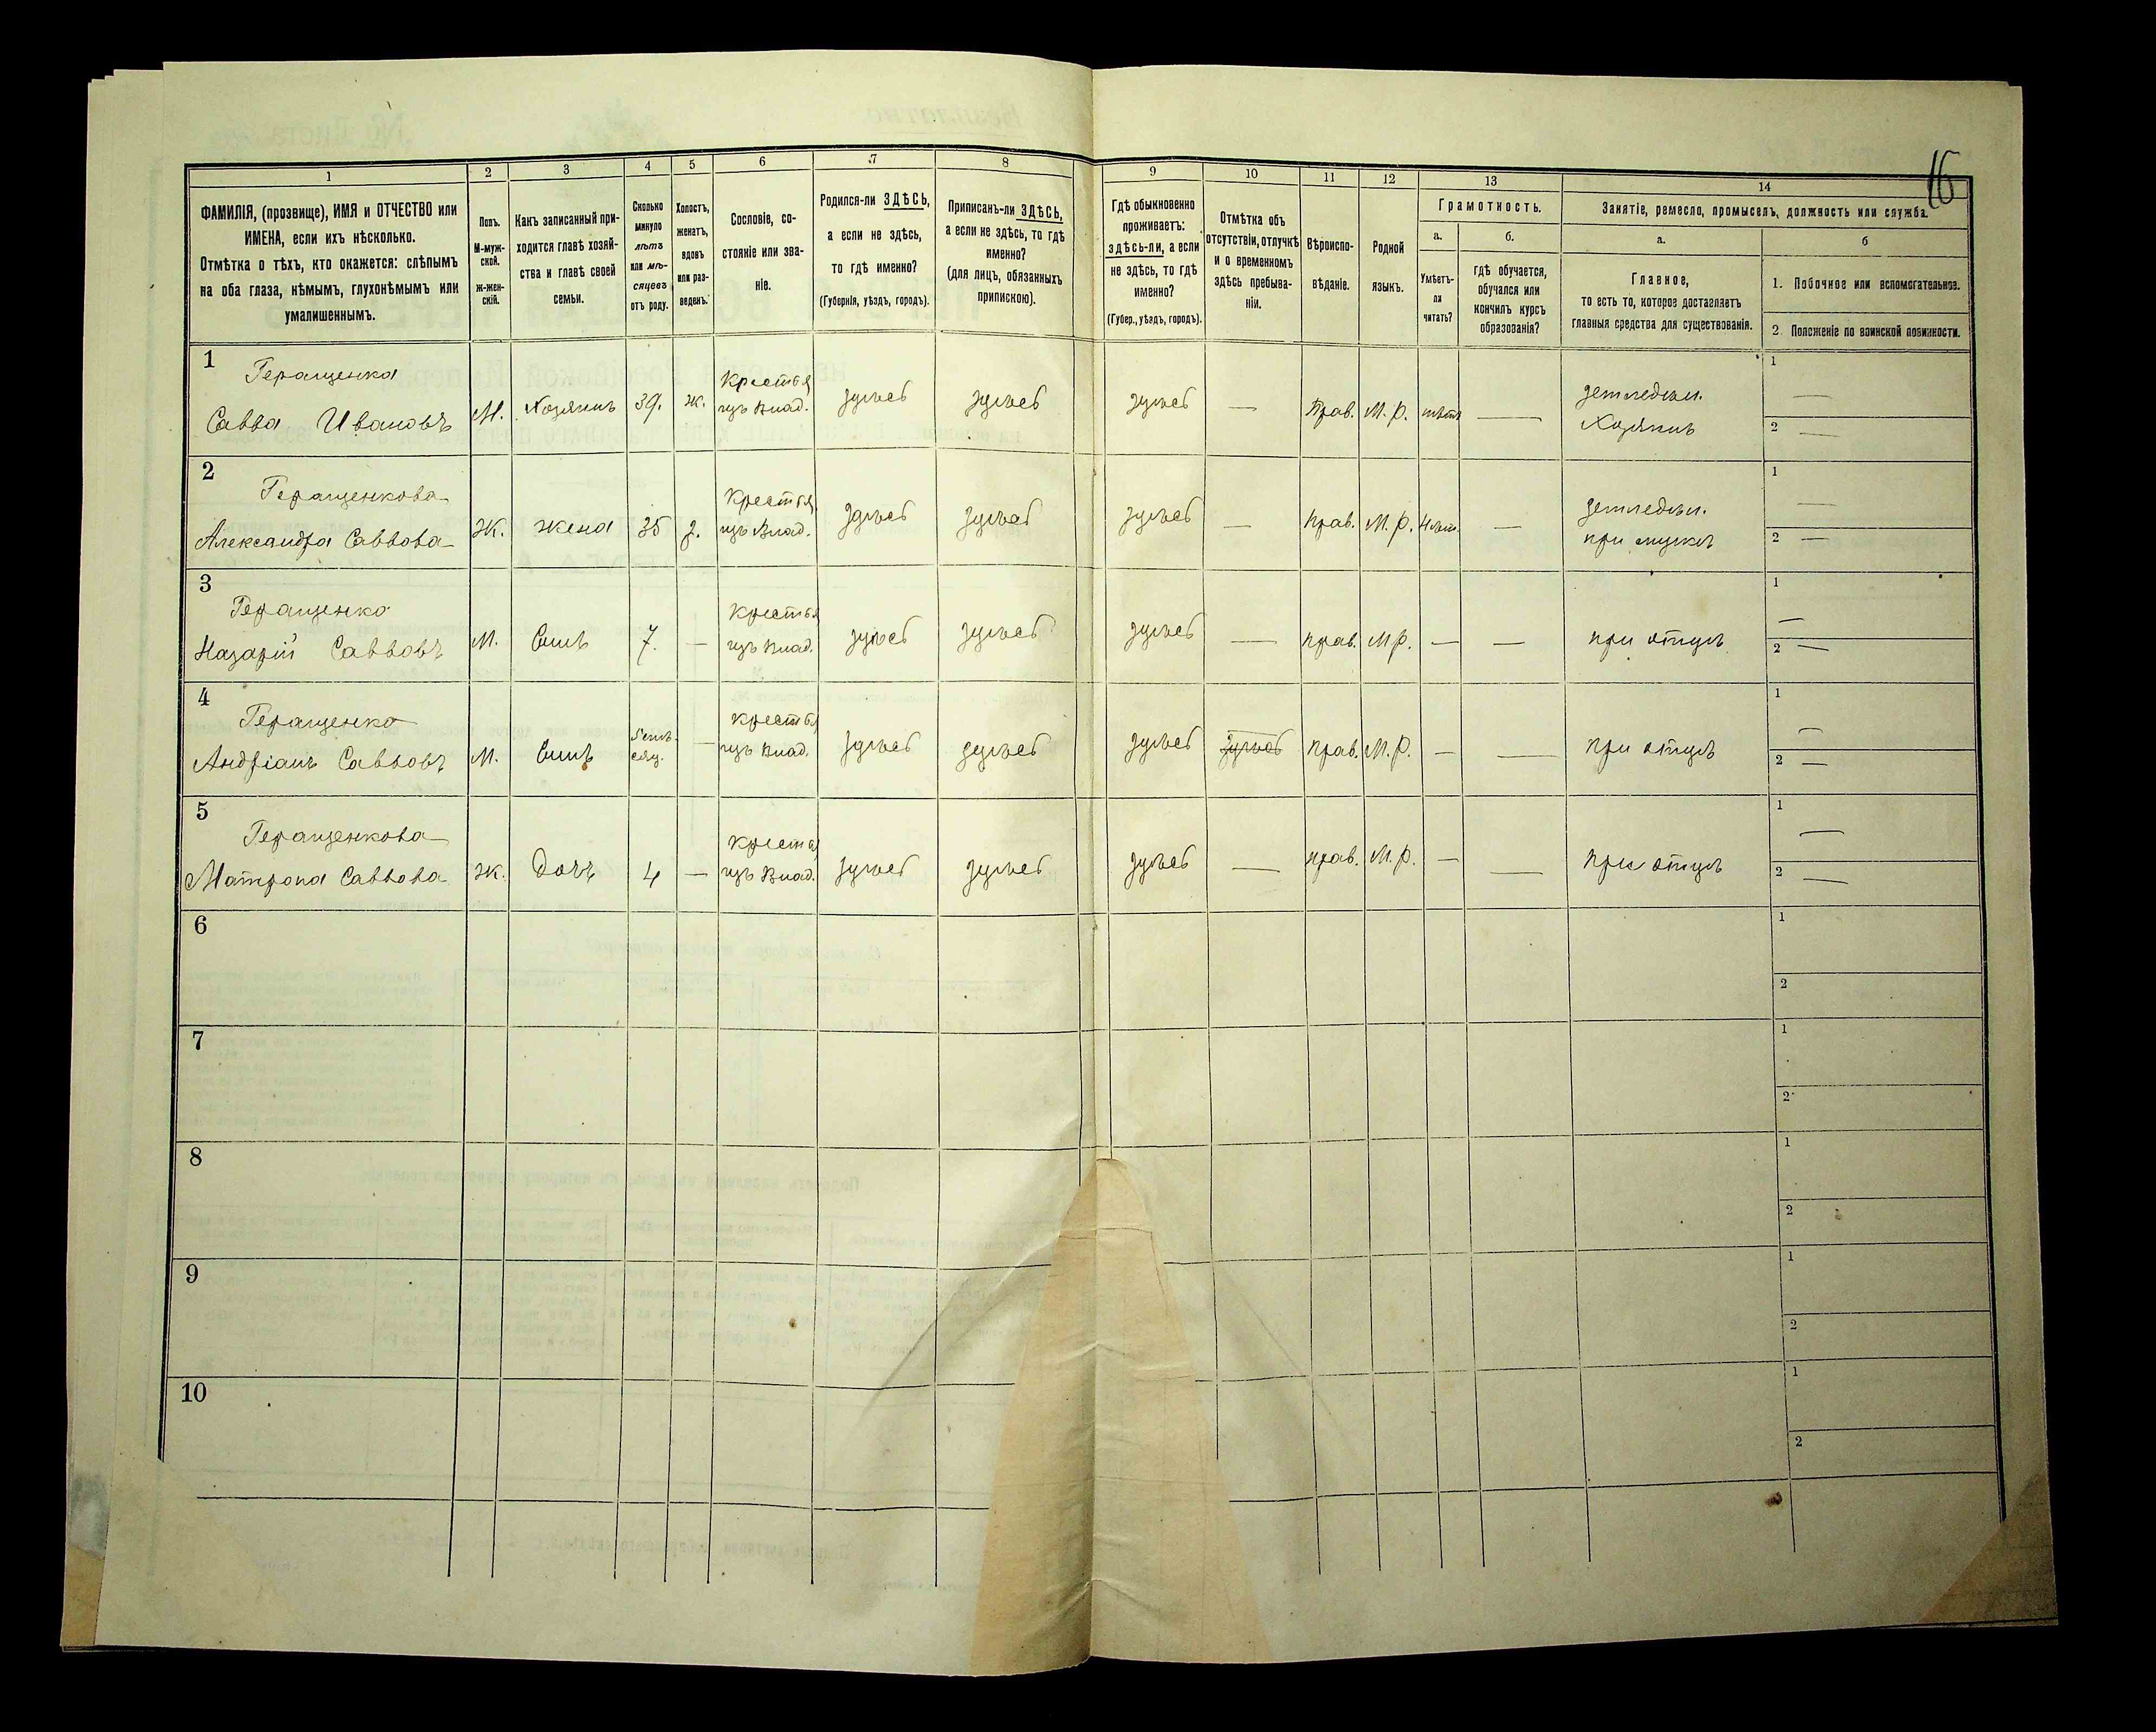 16
1 2 3 4 5 6 7 8 9 10 11 12 13 14
ФАМИЛІЯ, (прозвище), ИМЯ и ОТЧЕСТВО или
ИМЕНА, если ихъ нѣсколько.
Отмѣтка о тѣхъ, кто окажется: слѣпымъ
на оба глаза, нѣмымъ, глухонѣмымъ или
умалишеннымъ.
Полъ.
М-муж-
ской.
ж-жен-
скій.
Какъ записанный при-
ходится главѣ хозяй-
ства и главѣ своей
семьи.
Сколько
минуло
лѣтъ
или мѣ-
сяцевъ
отъ роду.
Холостъ,
женатъ,
вдовъ
или раз-
веденъ.
Сословіе, со-
стояніе или зва-
ніе.
Родился-ли ЗДѢСЬ,
а если не здѣсь,
то гдѣ именно?
(Губернія, уѣздъ, городъ).
Приписанъ-ли ЗДѢСЬ,
а если не здѣсь, то гдѣ
именно?
(для лицъ, обязанныхъ
припискою).
Гдѣ обыкновенно
проживаетъ:
здѣсь-ли, а если
не здѣсь, то гдѣ
именно?
(Губер., уѣздъ, городъ).
Отмѣтка объ
отсутствіи, отлучкѣ
и о временномъ
здѣсь пребыва-
ніи.
Вѣроиспо-
вѣданіе.
Родной
языкъ.
Грамотность.
а.
Умѣетъ-
ли
читать?
б.
гдѣ обучается,
обучался или
кончилъ курсъ
образованія?
Занятіе, ремесло, промыселъ, должность или служба.
а.
Главное,
то есть то, которое доставляетъ
главныя средства для существованія.
б
1. Побочное или вспомогательное.
2. Положеніе по воинской повинности.
1
Геращенко
Савва Ивановъ
М.
Хозяинъ
39.
ж.
Крестья
изъ Влад.
здѣсь
здѣсь
здѣсь
—
Прав.
М. Р.
нѣтъ
—
земледѣл.
Хозяинъ
1 —
2 —
2
Геращенкова
Александра Саввова
Ж.
жена
35
з.
Крестья
изъ Влад.
здѣсь
здѣсь
здѣсь
—
прав.
М. Р.
Нѣт.
—
земледѣл.
при мужѣ
1 —
2 —
3
Геращенко
Назарій Саввовъ
М.
Сынъ
7.
—
Крестья
изъ Влад.
здѣсь
здѣсь
здѣсь
—
прав.
М Р.
—
—
при отцѣ
1 —
2 —
4
Геращенко
Андріанъ Саввовъ
М.
Сынъ
сяц.
—
Крестья
изъ Влад.
здѣсь
здѣсь
здѣсь
здѣсь
прав.
М. Р.
—
—
при отцѣ
1 —
2 —
5
Геращенкова
Матрона Саввова
Ж.
Дочъ
4
—
Крестья
изъ Влад.
здѣсь
здѣсь
здѣсь
—
прав.
М. Р.
—
—
при отцѣ
1 —
2 —
6
1
2
7
1
2
8
1
2
9
1
2
10
1
2